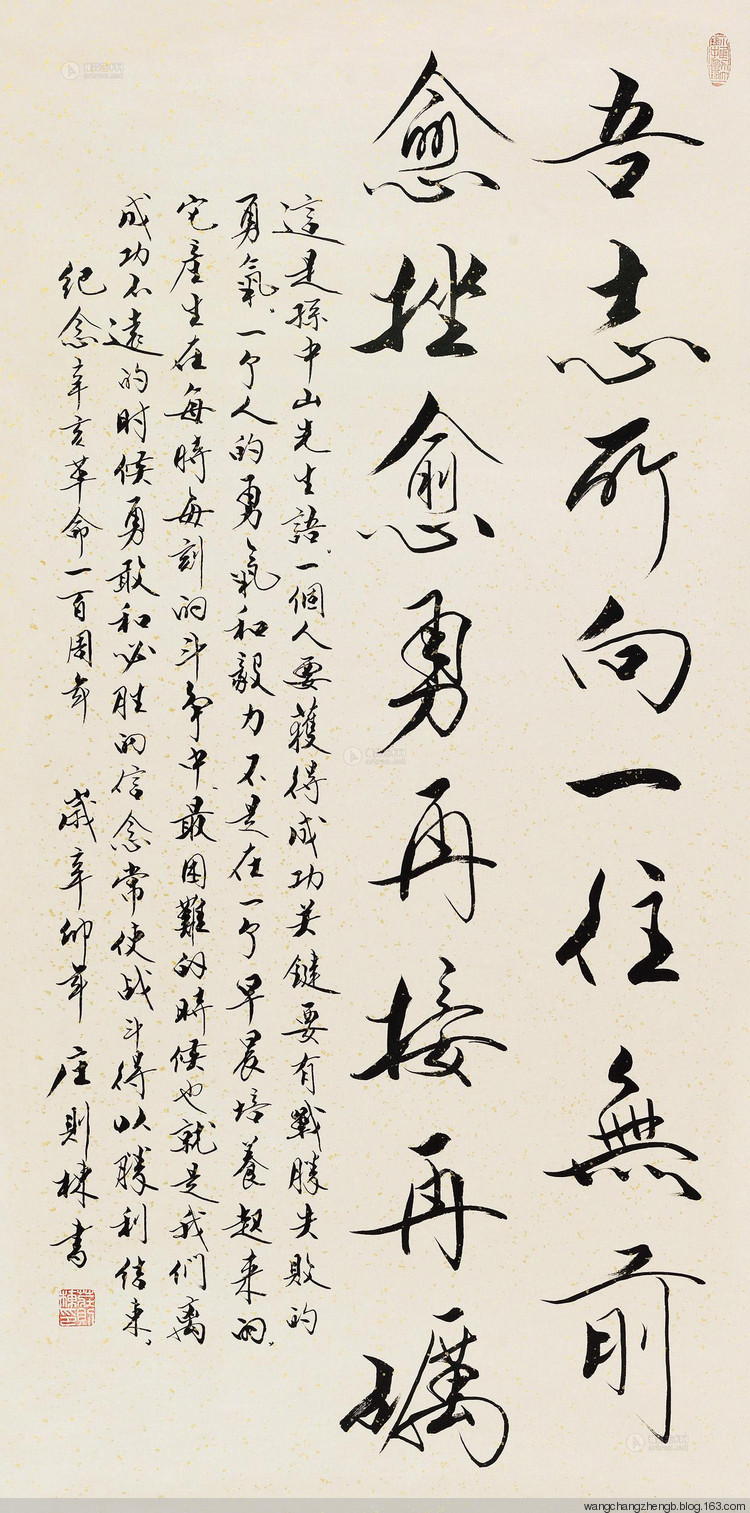 吾志所向一往無前
愈挫愈勇再接再礪
這是孫中山先生語.一個人要獲得成功关鍵要有戰勝失敗的
勇氣.一个人的勇氣和毅力不是在一个早晨培養起来的.
它産生在每時每刻的斗争中.最困難的時候也就是我们离
成功不遠的时候勇敢和必胜的信念常使战斗得以勝利结束.
纪念辛亥革命一百周年 歲辛卯年 庄則棟書
wangchangzhengb.blog.163.com